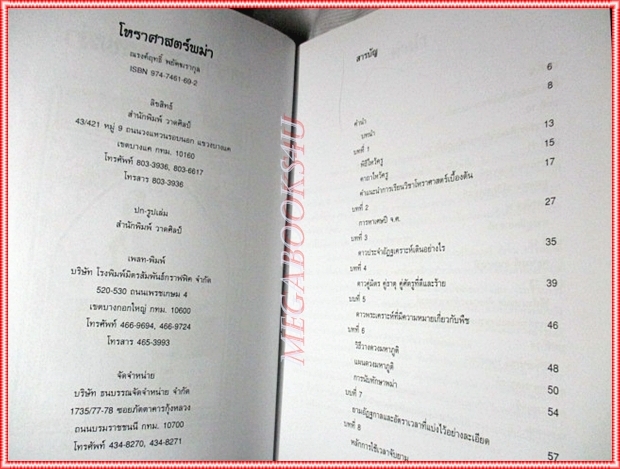 โหราศาสตร์พม่า
ณรงค์ฤทธิ์
ISBN 974-7461-69-2
ลิขสิทธิ์
สำนักพิมพ์ วาดศิลป์
43/421 หมู่ 9 ถนนวงแหวนรอบนอก แขวงบางแค
เขตบางแค กทม. 10160
โทรศัพท์ 803-3936, 803-6617
โทรสาร 803-3936
ปก-รูปเล่ม
สำนักพิมพ์ วาดศิลป์
เพลท-พิมพ์
บริษัท โรงพิมพ์มิตรสัมพันธ์กราฟฟิค จำกัด
520-530 ถนนเพชรเกษม 4
เขตบางกอกใหญ่ กทม. 10600
โทรศัพท์ 466-9694, 466-9724
โทรสาร 465-3993
จัดจำหน่าย
บริษัท ธนบรรณจัดจำหน่าย จำกัด
1735/77-78 ซอยภัตตาคารกุ้งหลวง
ถนนบรมราชชนนี กทม. 10700
โทรศัพท์ 434-8270, 434-8271
MEGABOOKS4U
สารบัญ
6
8
คำนำ
บทนำ 13
บทที่ 1 15
พิธีไหว้ครู 17
คาถาไหว้ครู
คำแนะนำการเรียนวิชาโหราศาสตร์เบื้องต้น
บทที่ 2 27
การหาเศษปี จ.ศ.
บทที่ 3
ดาวประจำอัฏฐเคราะห์เดินอย่างไร 35
บทที่ 4
ดาวคู่มิตร คู่ธาตุ คู่ศัตรูที่ดีและร้าย 39
บทที่ 5
ดาวพระเคราะห์ที่มีความหมายเกี่ยวกับพืช 46
บทที่ 6
วิธีวางดวงมหาภูติ 48
แผนดวงมหาภูติ
การนับทักษาพม่า 50
บทที่ 7
ยามอัฏฐกาลและอัตราเวลาที่แบ่งไว้อย่างละเอียด 54
บทที่ 8
หลักการใช้เวลาจับยาม 57